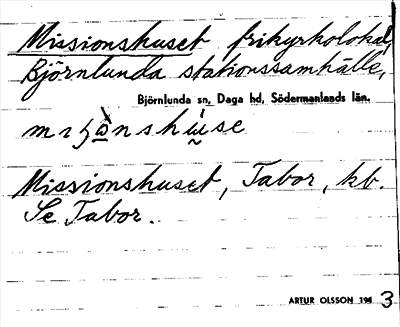 Missionshuset frikyrkolokal,
Björnlunda stationssamhälle,
Björnlunda sn, Daga hd, Södermanlands län.
Missionshuset, Tabor, kb.
Se Tabor.
ARTUR OLSSON 194 3